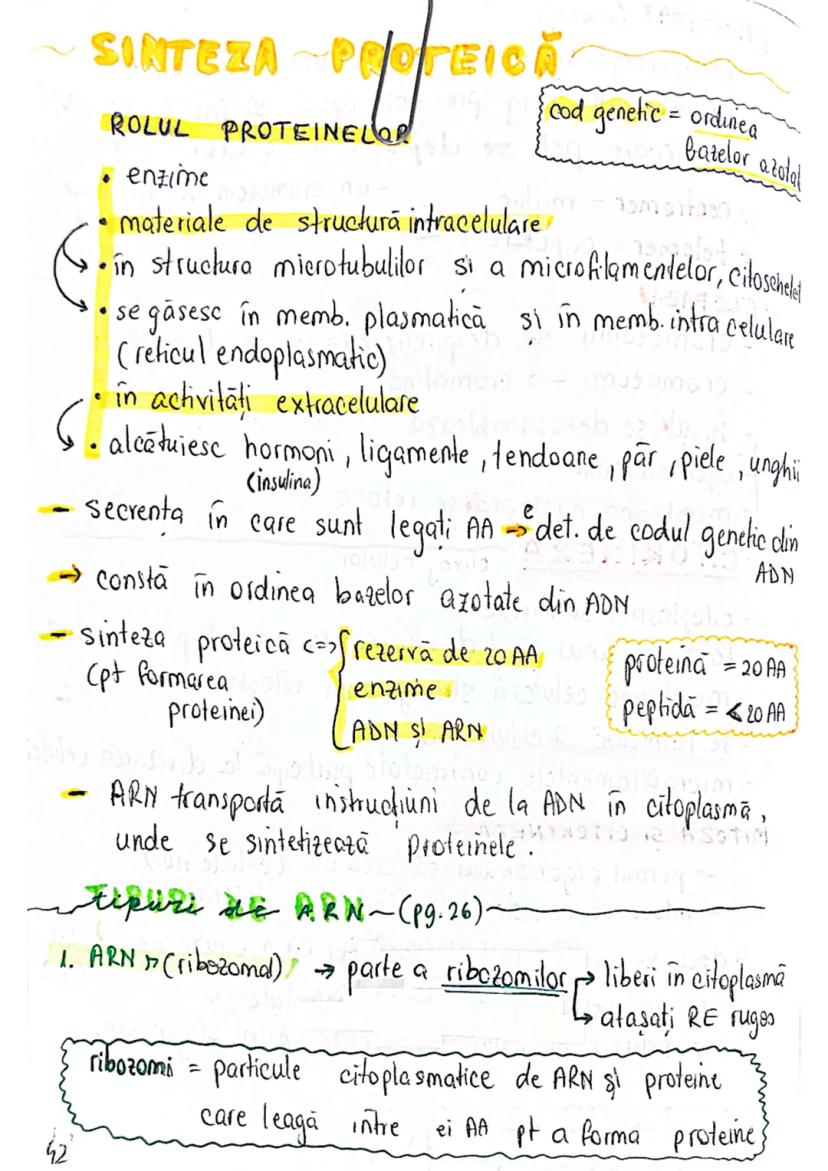 SINTEZA PROTEICĂ
cod genetic = ordinea
bazelor azotat
ROLUL PROTEINELOR
• enzime
• materiale de structură intracelulare
• în structura microtubulilor si a microfilamentelor, citoschelet
• se găsesc în memb. plasmatică si în memb. intracelulare
(reticul endoplasmatic)
• în activități extracelulare
• alcătuiesc hormoni, ligamente, tendoane, păr, piele, unghii
(insulina)
- secvența în care sunt legați AA → e det. de codul genetic din
ADN
→ constă în ordinea bazelor azotate din ADN
- sinteza proteică <=> { rezervă de 20 AA
(pt formarea enzime
proteinei) ADN și ARN
proteină = 20 AA
peptidă = < 20 AA
- ARN transportă instrucțiuni de la ADN în citoplasmă,
unde se sintetizează proteinele.
TIPURI DE ARN - (pg. 26)
1. ARN r (ribozomal) → parte a ribozomilor → liberi în citoplasmă
→ atașați RE rugos
ribozomi = particule citoplasmatice de ARN și proteine
care leagă între ei AA pt a forma proteine
42